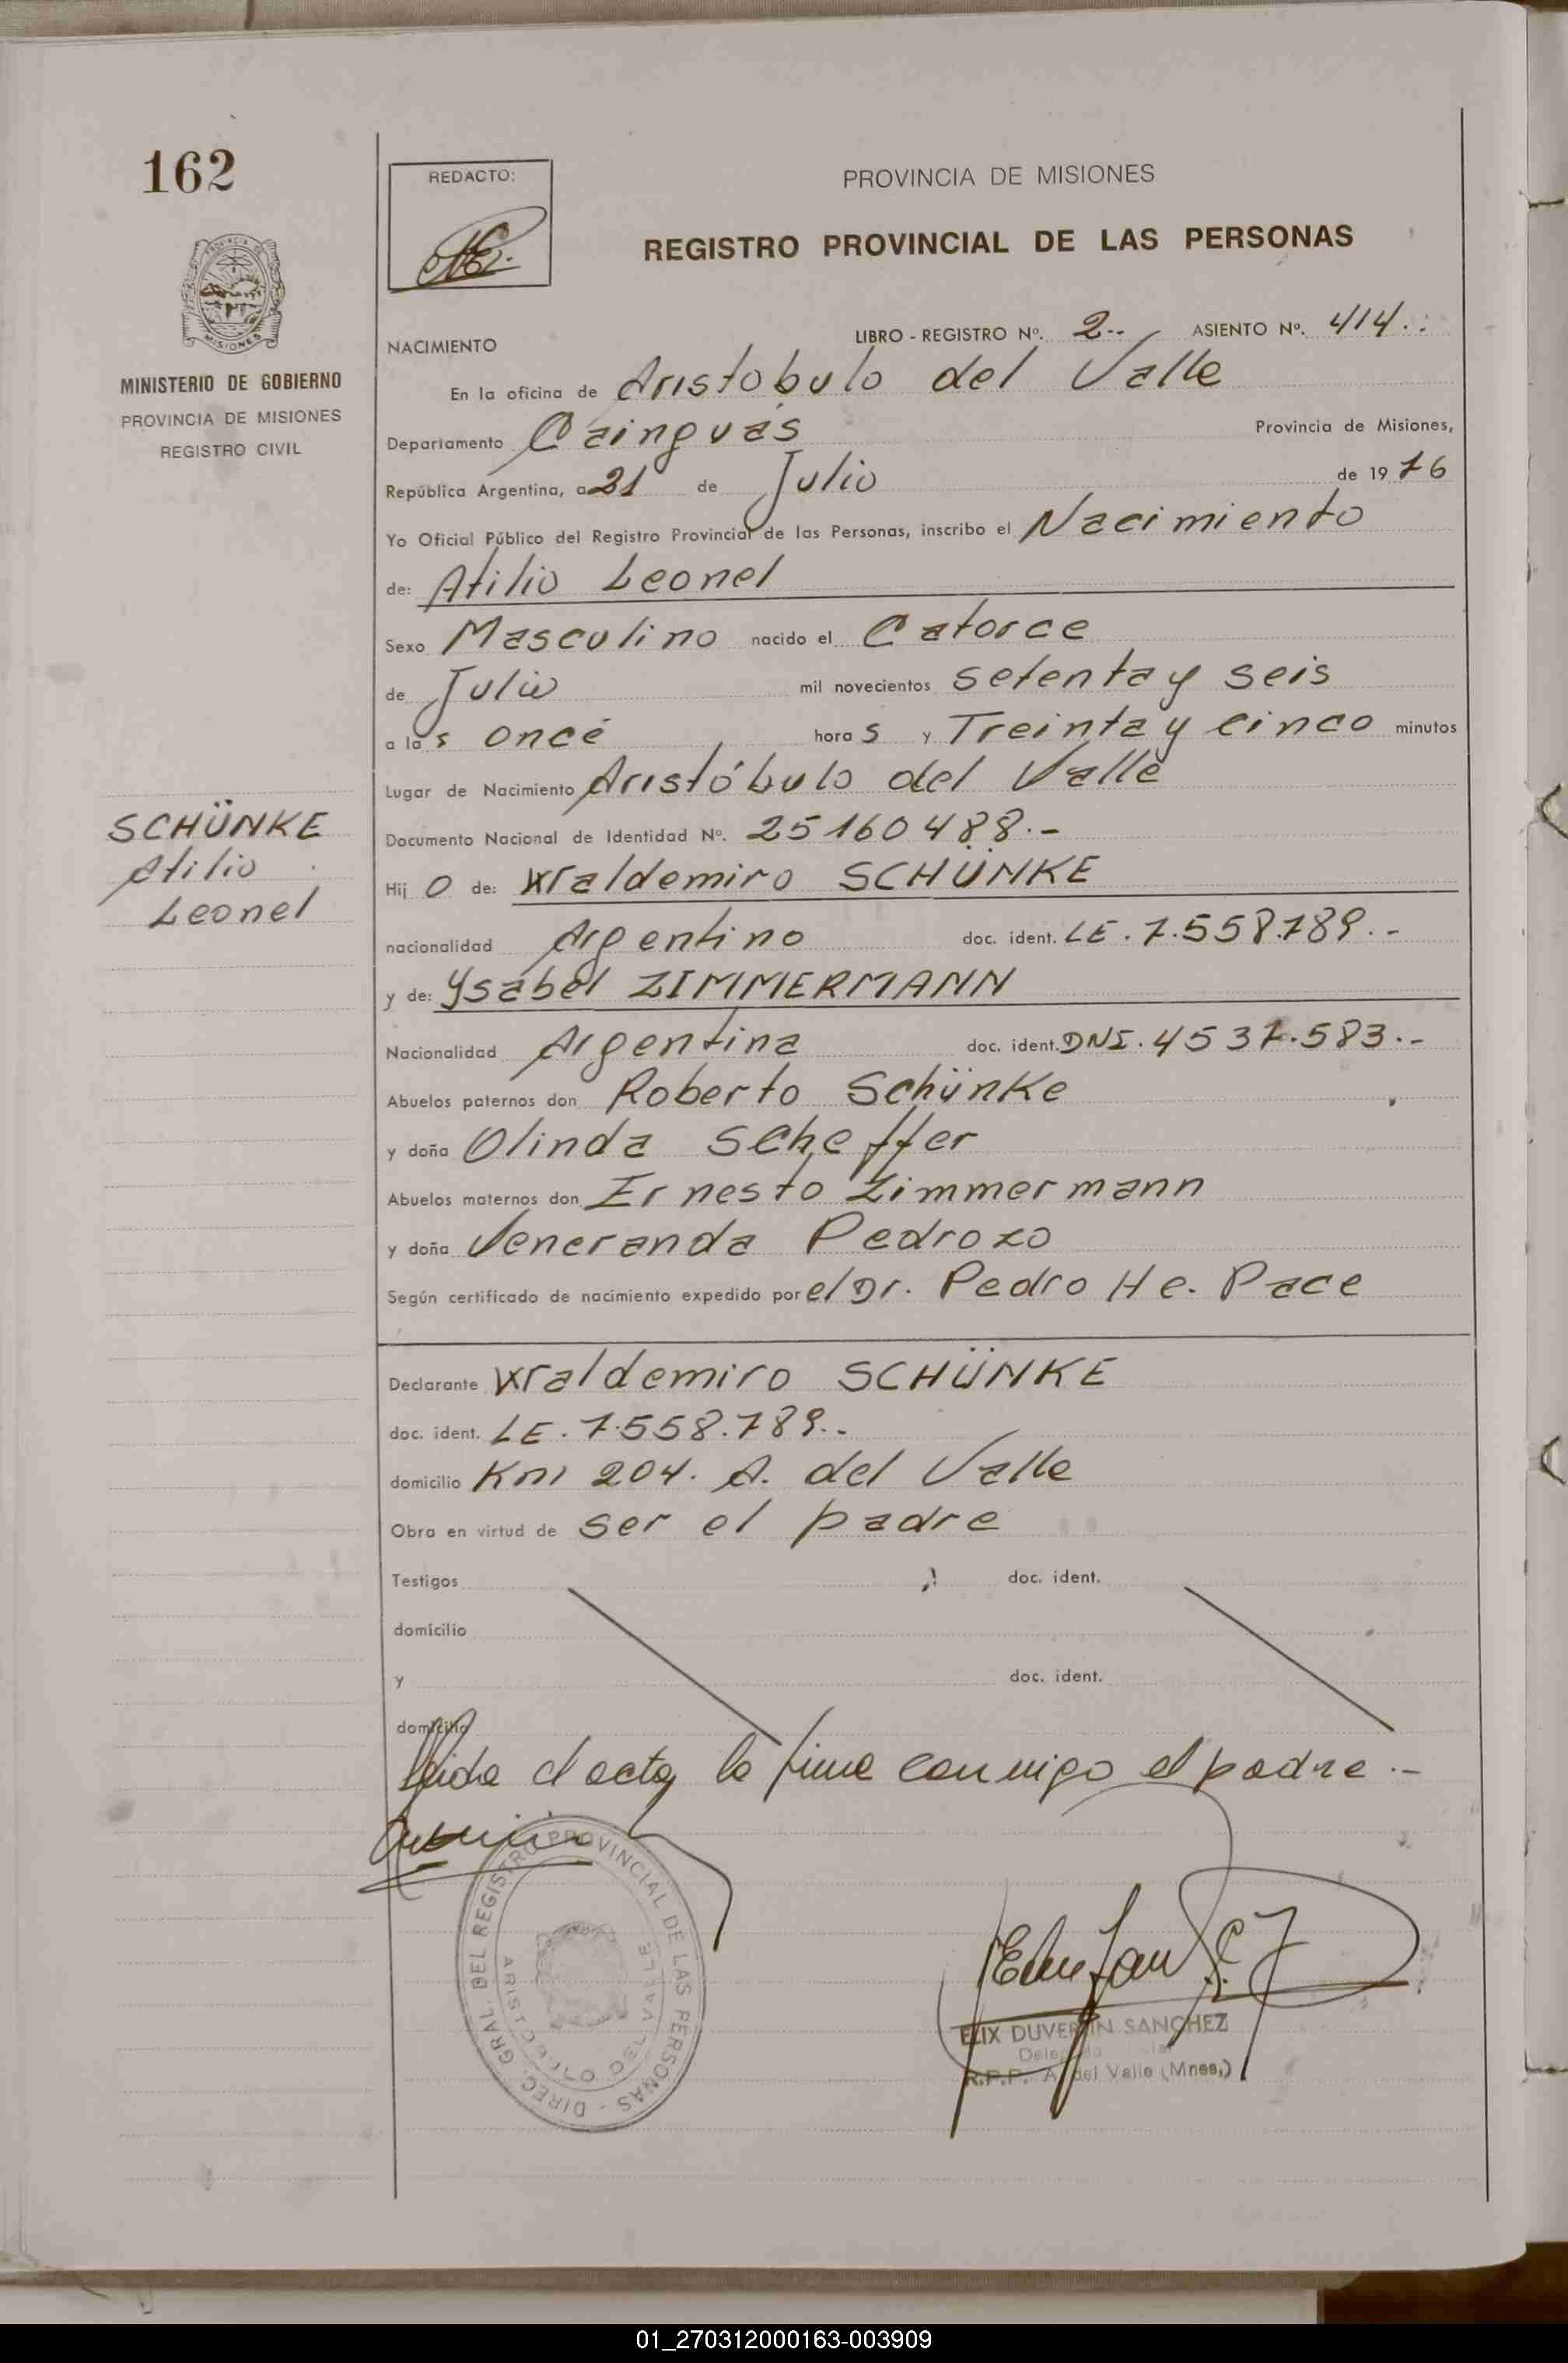 162
REDACTO:
PROVINCIA DE MISIONES
REGISTRO PROVINCIAL DE LAS PERSONAS
PROVINCIA DE MISIONES
MINISTERIO DE GOBIERNO
PROVINCIA DE MISIONES
REGISTRO CIVIL
SCHÜNKE
Atilio
Leonel
LIBRO - REGISTRO Nº. 2.. ASIENTO Nº. 414..
NACIMIENTO
En la oficina de Aristobulo del Valle
Departamento Cainguás Provincia de Misiones,
República Argentina, a 21 de Julio de 1976
Yo Oficial Público del Registro Provincial de las Personas, inscribo el Nacimiento
de: Atilio Leonel
Sexo Masculino nacido el Catorce
de Julio mil novecientos setenta y seis
a las once horas y Treinta y cinco minutos
Lugar de Nacimiento Aristóbulo del Valle
Documento Nacional de Identidad Nº. 25160488.-
Hijo de: Waldemiro SCHÜNKE
nacionalidad Argentino doc. ident. LE. 7.558.789.-
y de: Ysabel ZIMMERMANN
Nacionalidad Argentina doc. ident. DNI. 4537.583.-
Abuelos paternos don Roberto Schünke
y doña Olinda Scheffer
Abuelos maternos don Ernesto Zimmermann
y doña Veneranda Pedrozo
Según certificado de nacimiento expedido por el Dr. Pedro He. Pace
Declarante Waldemiro SCHÜNKE
doc. ident. LE. 7.558.789.-
domicilio Km 204. A. del Valle
Obra en virtud de ser el padre
Testigos doc. ident.
domicilio
y doc. ident.
domicilio
leida el acta, la firma conmigo el padre.-
DIREC. GRAL. DEL REGISTRO PROVINCIAL DE LAS PERSONAS -
ARISTOBULO DEL VALLE
DUVERLIN SANCHEZ
R.P.P. A. del Valle (Mnes.)
01_270312000163-003909